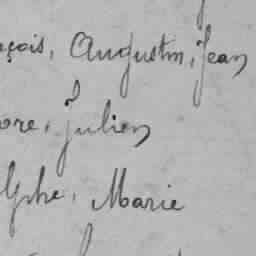 nçois, Augustin, Jean
ore, Julien
lphe, Marie